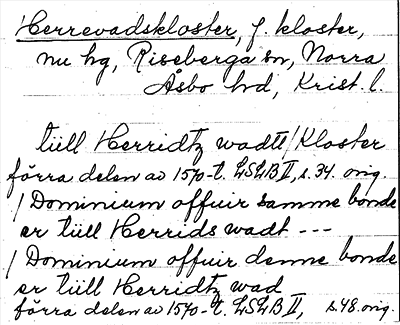 Herrevadskloster, f. kloster,
nu hg, Riseberga sn, Norra
Åsbo hd, Krist. l.
tiill Herridtz wadtt / Kloster
förra delen av 1570-t. LSLB II, s. 34. orig.
/ Dominium offuir samme bonde
er tiill Herrids wadt ---
/ Dominium offuir denne bonde
er tiill Herridtz wad
förra delen av 1570-t. LSLB II, s. 48. orig.